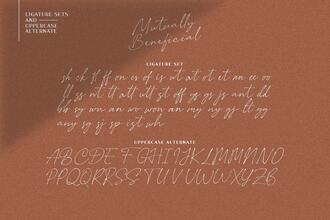 LIGATURE SETS
AND
UPPERCASE
ALTERNATE
Mutually
Beneficial
LIGATURE SET
sh ck ff on es of is ut at ot et an ee oo
ll ss nt tt att utt st off ys gs js ant dd
bb sy wn an wo won an my ny gg tt yy
any sg sj sp ist wh
UPPERCASE ALTERNATE
ABCDEFFGHIJKLMMNNO
PPQQRRSSTUVUWWXYZB